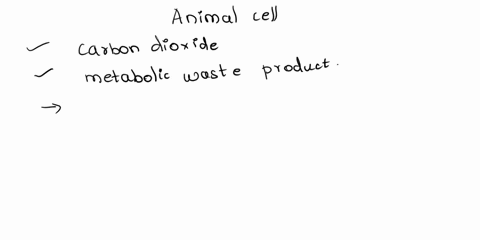 Animal cell
✓ carbon dioxide
✓ metabolic waste product.
→